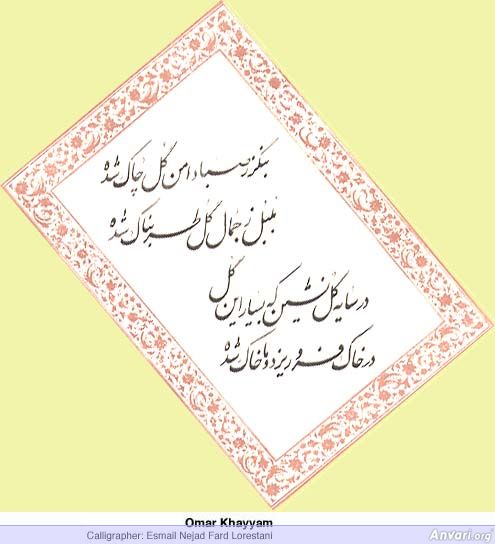 بنگر ز صبا دامن گل چاک شده
بلبل ز جمال گل طربناک شده
در سایه گل نشین که بسیار این گل
در خاک فرو ریزد و ما خاک شده
Omar Khayyam
Calligrapher: Esmail Nejad Fard Lorestani
Anvari.org